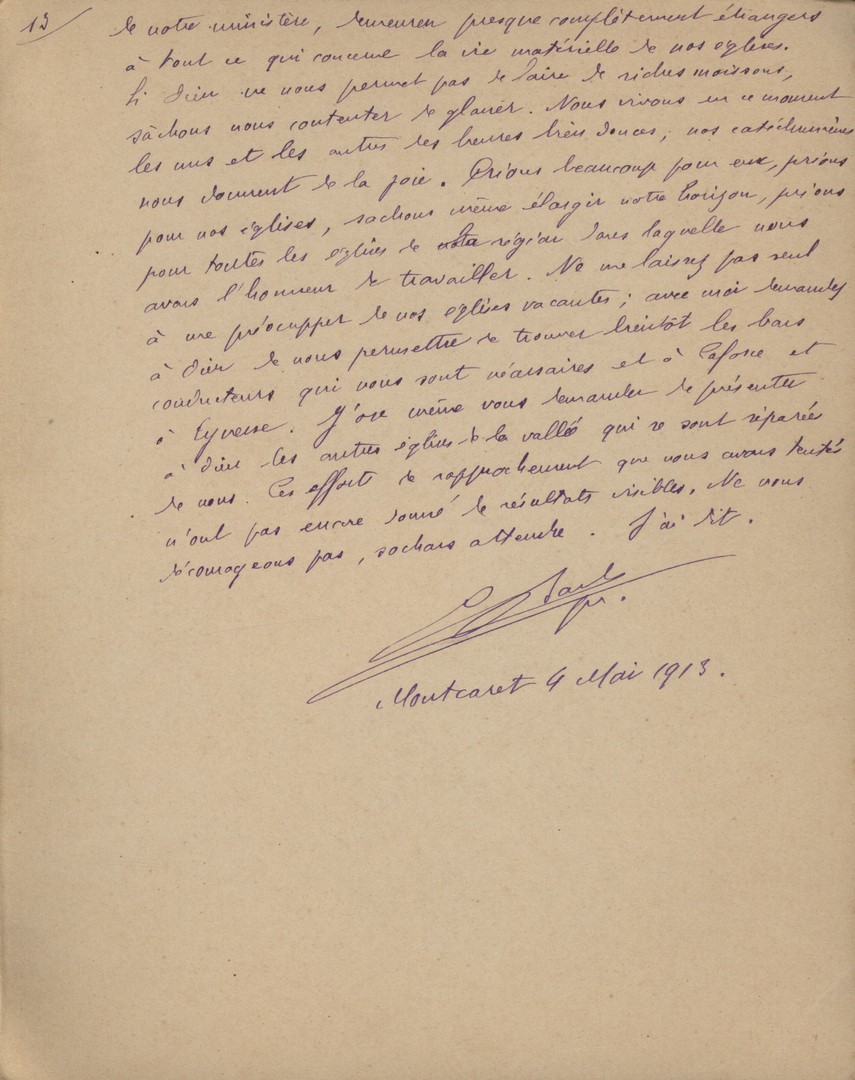 13
de notre ministère, demeurer presque complètement étrangers
à tout ce qui concerne la vie matérielle de nos églises.
Si Dieu ne nous permet pas de faire de riches moissons,
sachons nous contenter de glaner. Nous vivons en ce moment
les uns et les autres des heures bien douces, nos catéchumènes
nous donnent de la joie. Prions beaucoup pour eux, prions
pour nos églises, sachons même élargir notre horizon, prions
pour toutes les églises de la région dans laquelle nous
avons l'honneur de travailler. Ne me laissez pas seul
à me préocupper de nos églises vacantes; avec moi demandez
à Dieu de nous permettre de trouver bientôt les bons
conducteurs qui nous sont nécessaires et à Laforce et
à Eynesse. J'ose même vous demander de présenter
à Dieu les autres églises de la vallée qui se sont séparées
de nous. Ces efforts de rapprochement que nous avons tentés
n'ont pas encore donné de résultats visibles. Ne nous
décourageons pas, sachons attendre. J'ai dit.
pr.
Montcaret 4 Mai 1913.